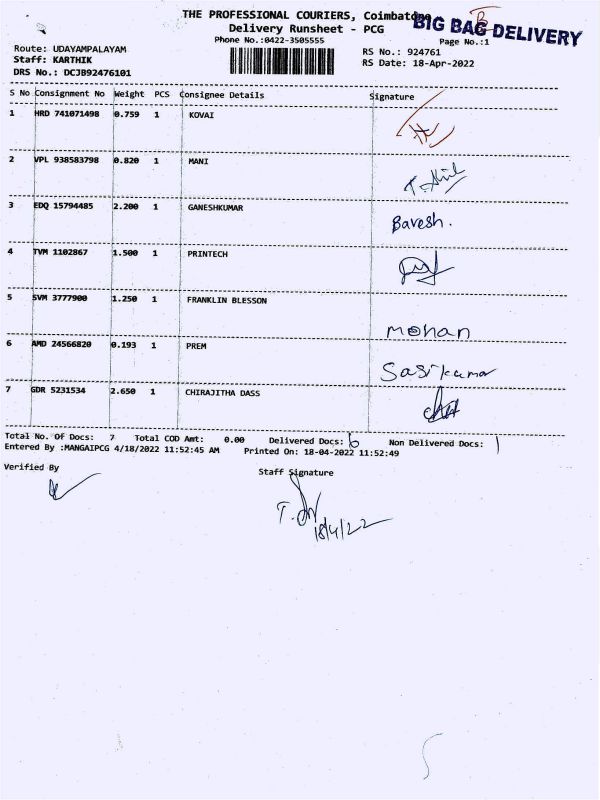 THE PROFESSIONAL COURIERS, Coimbatore
BIG BAG DELIVERY
B
Delivery Runsheet - PCG
Phone No.:0422-3505555
Page No.:1
Route: UDAYAMPALAYAM
RS No.: 924761
Staff: KARTHIK
RS Date: 18-Apr-2022
DRS No.: DCJB92476101
S No Consignment No Weight PCS Consignee Details Signature
1 HRD 741071498 0.759 1 KOVAI
2 VPL 938583798 0.820 1 MANI
3 EDQ 15794485 2.200 1 GANESHKUMAR Bavesh.
4 TVM 1102867 1.500 1 PRINTECH
5 SVM 3777900 1.250 1 FRANKLIN BLESSON mohan
6 AMD 24566820 0.193 1 PREM Sasikumar
7 GDR 5231534 2.650 1 CHIRAJITHA DASS
Total No. Of Docs: 7 Total COD Amt: 0.00 Delivered Docs: 6 Non Delivered Docs: 1
Entered By :MANGAIPCG 4/18/2022 11:52:45 AM Printed On: 18-04-2022 11:52:49
Verified By Staff Signature
18/4/22